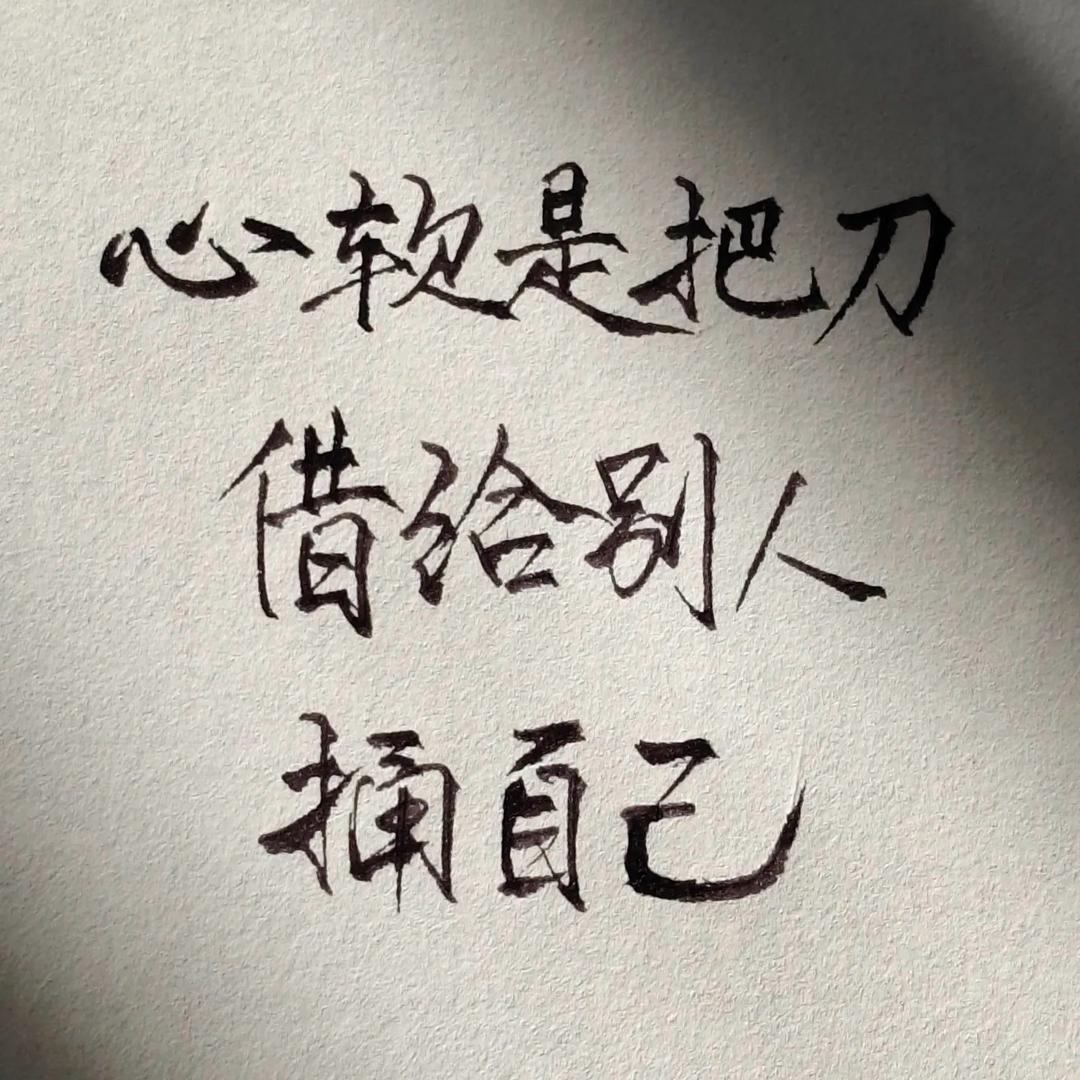 心软是把刀
借给别人
捅自己